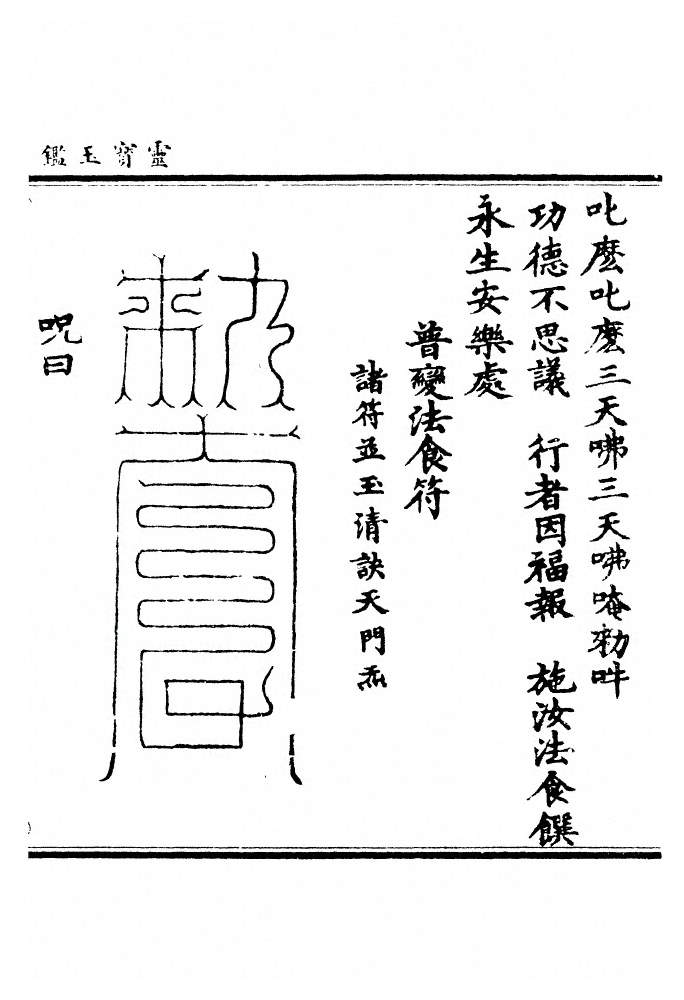 靈寶玉鑑
叱麽叱麽三天咈三天咈唵勑吽
功德不思議　行者因福報　施汝法食饌
永生安樂處
普變法食符
諸符並玉清訣天門炁
呪曰